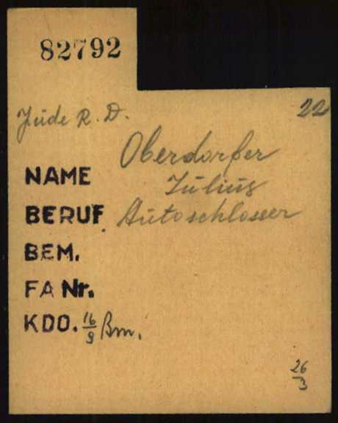 82792
22
Jude R. D.
NAME Oberdorfer
Julius
BERUF Autoschlosser
BEM.
FA Nr.
KDO. 16/9 Bm.
26/3